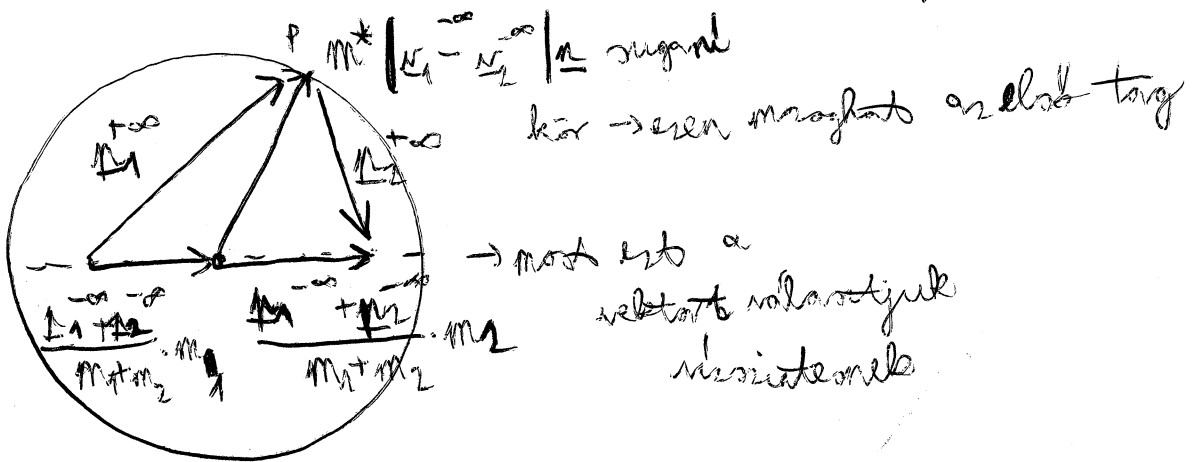 P m* |v₁^-∞ - v₂^-∞| n sugarú
kör → ezen mozoghat az első tag
p₁^+∞
p₂^+∞
→ most ezt a
vektort választjuk
vízszintesnek
(p₁^-∞ + p₂^-∞)/(m₁+m₂) · m₁
(p₁^-∞ + p₂^-∞)/(m₁+m₂) · m₂